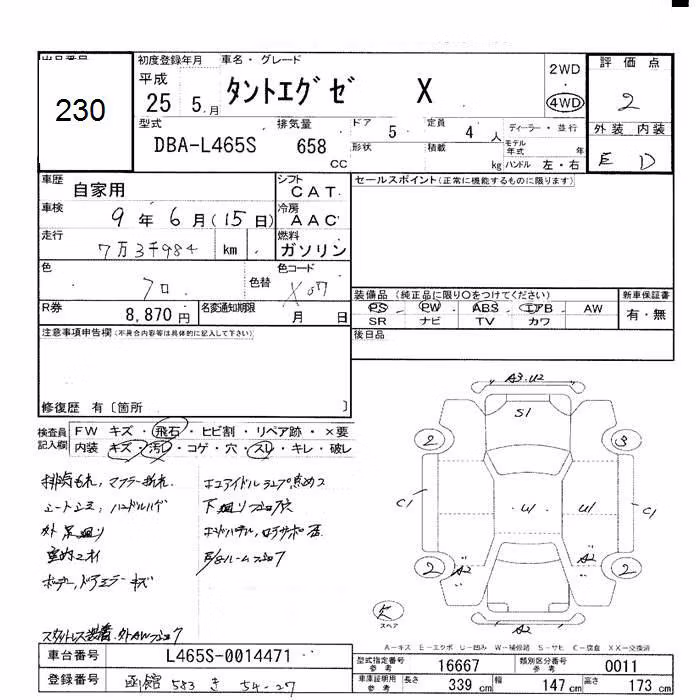 出品番号
230
初度登録年月
平成
25 5.月
車名・グレード
タントエグゼ X
2WD
4WD
評価点
2
外装 内装
E D
型式
DBA-L465S
排気量
658 cc
ドア 5
形状
定員 4 人
積載 kg
ディーラー・並行
モデル年式 年
ハンドル 左・右
車歴 自家用
シフト CAT
車検 9 年 6 月(15 日)
冷房 AAC
走行 7万3千984 km
燃料 ガソリン
色 クロ
色替
色コード X07
R券 8,870 円
名変通知期限 月 日
セールスポイント(正常に機能するものに限ります)
装備品 (純正品に限り○をつけてください)
PS PW ABS エアB AW
SR ナビ TV カワ
新車保証書
有・無
後日品
注意事項申告欄(不具合内容等は具体的に記入して下さい)
修復歴 有〔箇所 〕
検査員記入欄
FW キズ・飛石・ヒビ割・リペア跡・×要
内装 キズ・汚レ・コゲ・穴・スレ・キレ・破レ
排気もれ、マフラー折れ
シートシミ、ハンドルハゲ
下廻りサビ穴
A3.U2
S1
2 3
C1 U1 U1 C1
A2 A2
2 2
スペア
A-キズ E-エクボ U-凹み W-補修跡 S-サビ C-腐食 XX-交換済
車台番号 L465S-0014471
登録番号 函館 583 き 54-27
型式指定番号 参考 16667
類別区分番号 参考 0011
車庫証明用 参考 長さ 339 cm 幅 147 cm 高さ 173 cm